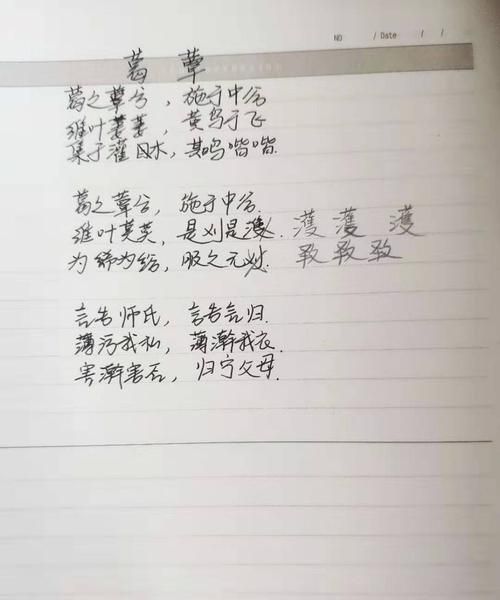 NO / Date / /
葛 蕈
葛之蕈兮，施于中谷
维叶萋萋，黄鸟于飞
集于灌木，其鸣喈喈.
葛之蕈兮，施于中谷.
维叶莫莫，是刈是濩. 濩 濩 濩
为絺为绤，服之无 致 致 致
言告师氏，言告言归.
薄污我私，薄澣我衣.
害澣害否，归宁父母.